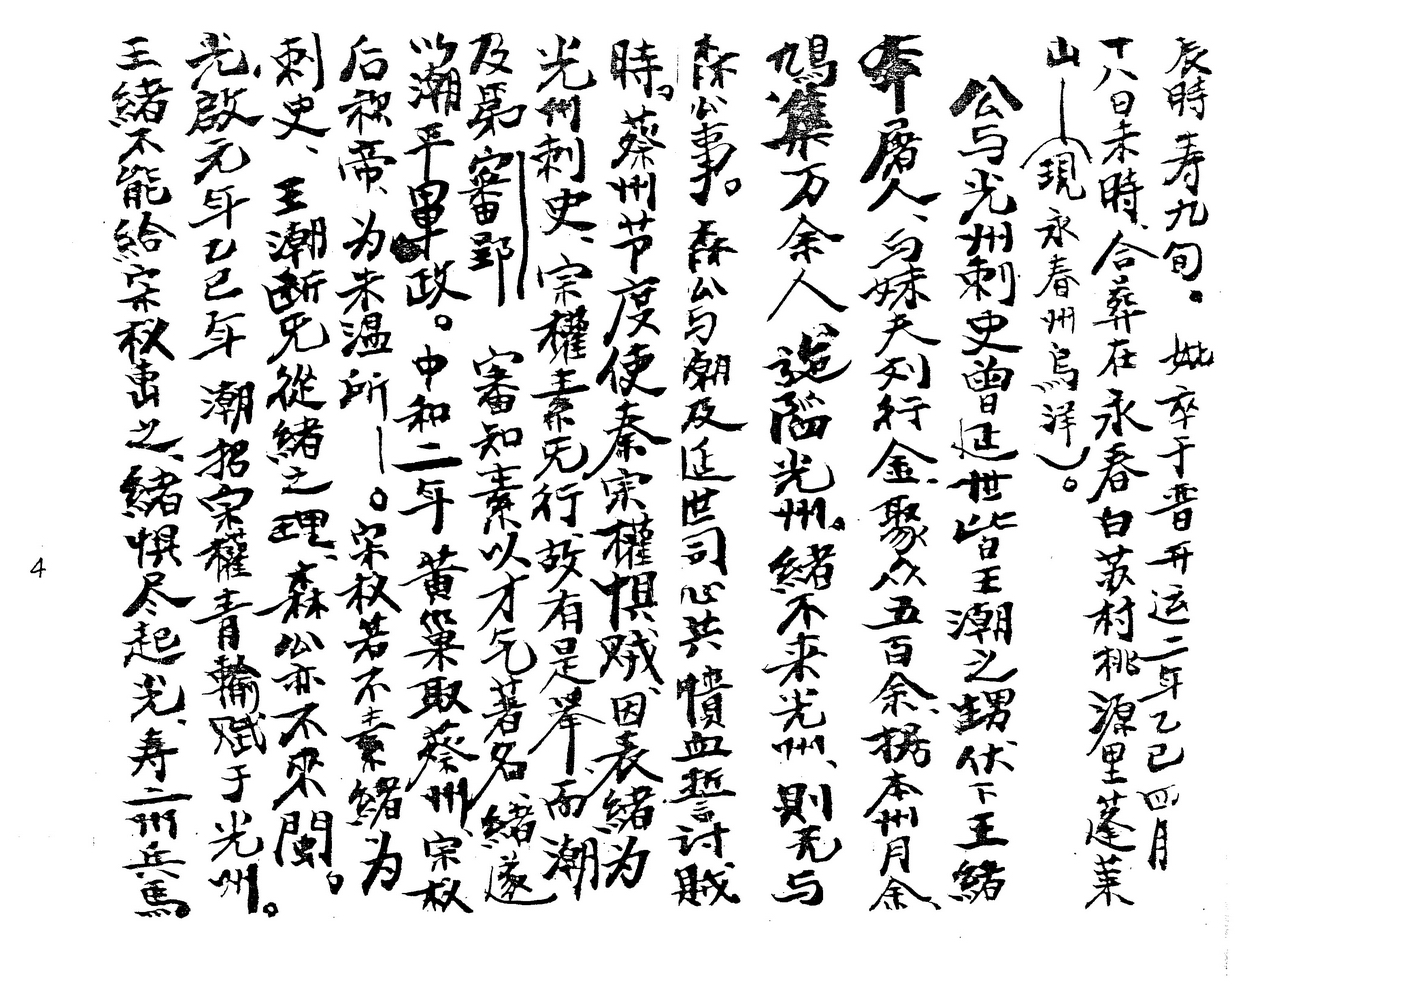 辰時寿九旬。妣卒于晋开运二年乙巳四月
十八日未時、合葬在永春白苏村桃源里蓬莱
山—(現永春州烏洋)。
公与光州刺史曾延世皆王潮之甥伏下王緒
本屠人、与妹夫刘行金、聚众五百余、据本州月余、
鳩集万余人 逃陷光州。緒不来光州、則无与
森公事。森公与潮及延世同心共憤血誓討賊
時。蔡州节度使秦宗權惧賊、因表緒为
光州刺史、宗權素无行、故有是举、而潮
及弟審郢 審知素以才气著名、緒遂
以潮平軍政。中和二年黄巢取蔡州、宗权
后称帝、为朱温所—。宋权若不素緒为
刺史、王潮断无從緒之理、森公亦不來閩。
光、啟元年乙巳年 潮招宗權青輸赋于光州。
王緒不能給宗权責之、緒惧尽起光、寿二州兵馬。
4